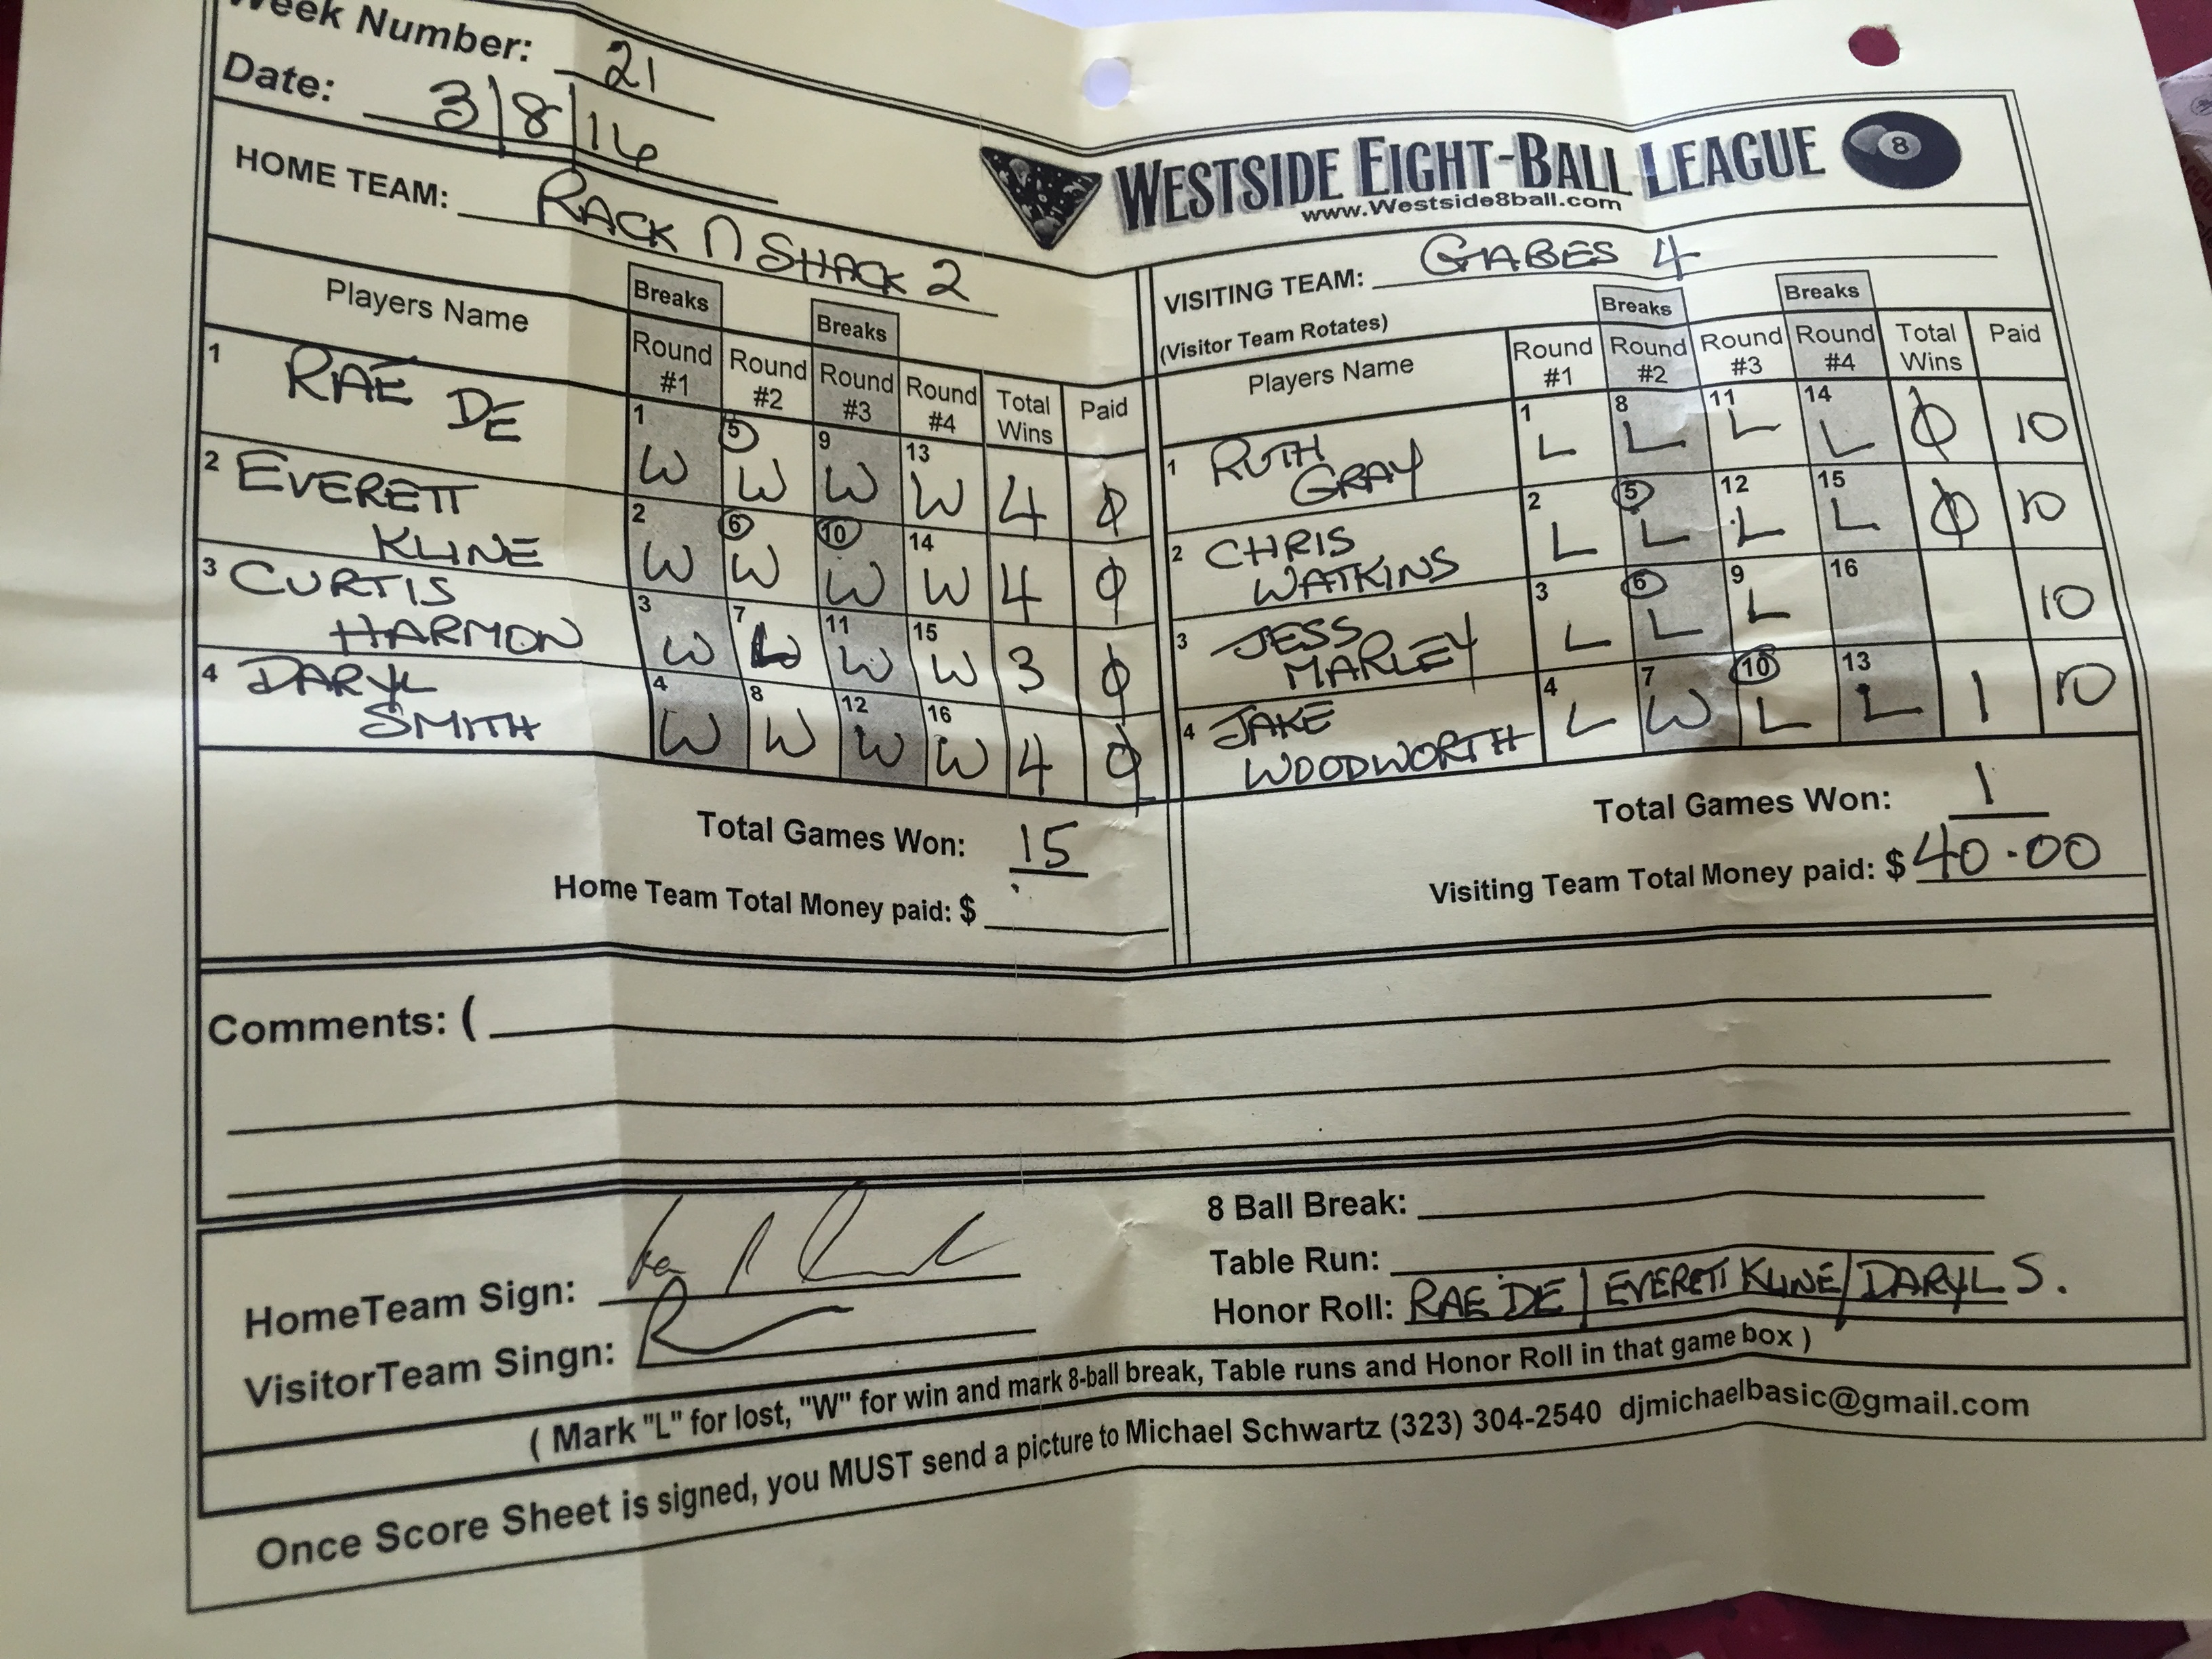 Week Number: 21
Date: 3/8/16
HOME TEAM: RACK N SHACK 2
WESTSIDE EIGHT-BALL LEAGUE 8
www.Westside8ball.com
VISITING TEAM: GABES 4
(Visitor Team Rotates)
Breaks Breaks
Players Name Round #1 Round #2 Round #3 Round #4 Total Wins Paid
1 RAE DE 1 W 5 W 9 W 13 W 4 0
2 EVERETT KLINE 2 W 6 W 10 W 14 W 4 0
3 CURTIS HARMON 3 W 7 L 11 W 15 W 3 0
4 DARYL SMITH 4 W 8 W 12 W 16 W 4 0
Total Games Won: 15
Home Team Total Money paid: $
Breaks Breaks
Players Name Round #1 Round #2 Round #3 Round #4 Total Wins Paid
1 RUTH GRAY 1 L 8 L 11 L 14 L 0 10
2 CHRIS WATKINS 2 L 5 L 12 L 15 L 0 10
3 JESS MARLEY 3 L 6 L 9 L 16 10
4 JAKE WOODWORTH 4 L 7 W 10 L 13 L 1 10
Total Games Won: 1
Visiting Team Total Money paid: $40.00
Comments: (
HomeTeam Sign:
VisitorTeam Singn:
8 Ball Break:
Table Run:
Honor Roll: RAE DE / EVERETT KLINE / DARYL S.
( Mark "L" for lost, "W" for win and mark 8-ball break, Table runs and Honor Roll in that game box )
Once Score Sheet is signed, you MUST send a picture to Michael Schwartz (323) 304-2540 djmichaelbasic@gmail.com